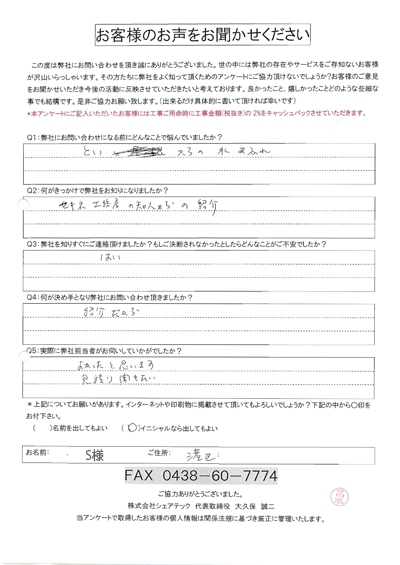 お客様のお声をお聞かせください
この度は弊社にお問い合わせを頂き誠にありがとうございました。世の中には弊社の存在やサービスをご存知ないお客様
が沢山いらっしゃいます。その方たちに弊社をよく知って頂くためのアンケートにご協力頂けないでしょうか?お客様のご意見
をお聞かせいただき今後の活動に反映させていただきたいと考えております。良かったこと、嬉しかったことどのような些細な
事でも結構です。是非ご協力お願い致します。(出来るだけ具体的に書いて頂ければ幸いです)
*本アンケートにご記入いただいたお客様には工事ご用命時に工事金額(税抜き)の 2%をキャッシュバックさせていただきます。
Q1:弊社にお問い合わせになる前にどんなことで悩んでいましたか?
とい からの水 あふれ
Q2:何がきっかけで弊社をお知りになりましたか?
工務店の知人からの紹介
Q3:弊社を知りすぐにご連絡頂けましたか?もしご決断されなかったとしたらどんなことがご不安でしたか?
はい
Q4:何が決め手となり弊社にお問い合わせ頂きましたか?
紹介だから
Q5:実際に弊社担当者がお伺いしていかがでしたか?
よかったと思います
見積り
*上記についてお願いがあります。インターネットや印刷物に掲載させて頂いてもよろしいでしょうか?下記の中から〇印を
お付け下さい。
( )名前を出してもよい (〇)イニシャルなら出してもよい
お名前: S様 ご住所:
FAX 0438-60-7774
ご協力ありがとうございました。
株式会社シェアテック 代表取締役 大久保 誠二
当アンケートで取得したお客様の個人情報は関係法規に基づき厳正に管理いたします。